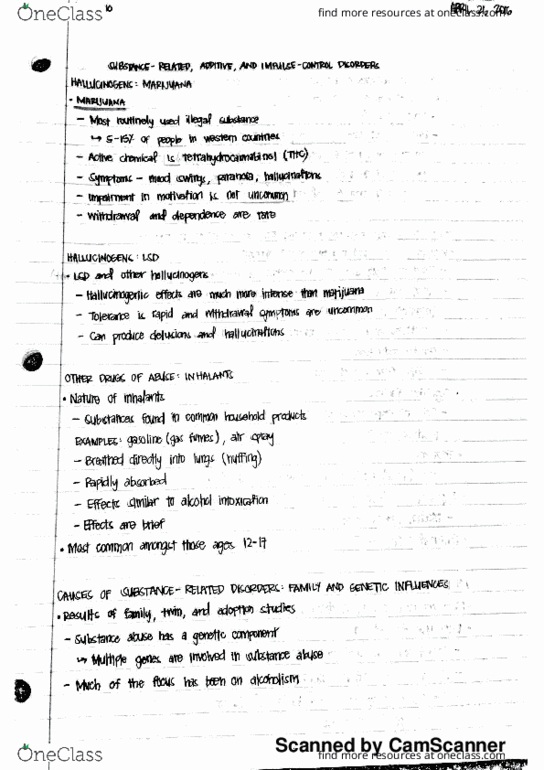 OneClass
10
find more resources at oneclass.com
APRIL 21, 2016
SUBSTANCE-RELATED, ADDITIVE, AND IMPULSE-CONTROL DISORDERS
HALLUCINOGENS: MARIJUANA
• MARIJUANA
- Most routinely used illegal substance
↳ 5-15% of people in western countries
- Active chemical is tetrahydrocannabinol (THC)
- Symptoms - mood swings, paranoia, hallucinations
- Impairment in motivation is not uncommon
- Withdrawal and dependence are rare
HALLUCINOGENS: LSD
• LSD and other hallucinogens
- Hallucinogenic effects are much more intense than marijuana
- Tolerance is rapid and withdrawal symptoms are uncommon
- Can produce delusions and hallucinations
OTHER DRUGS OF ABUSE: INHALANTS
• Nature of inhalants
- Substances found in common household products
EXAMPLES: gasoline (gas fumes), air spray
- Breathed directly into lungs (huffing)
- Rapidly absorbed
- Effects similar to alcohol intoxication
- Effects are brief
• Most common amongst those ages 12-17
CAUSES OF SUBSTANCE-RELATED DISORDERS: FAMILY AND GENETIC INFLUENCES
• Results of family, twin, and adoption studies
- Substance abuse has a genetic component
↳ Multiple genes are involved in substance abuse
- Much of the focus has been on alcoholism
Scanned by CamScanner
OneClass
find more resources at oneclass.com